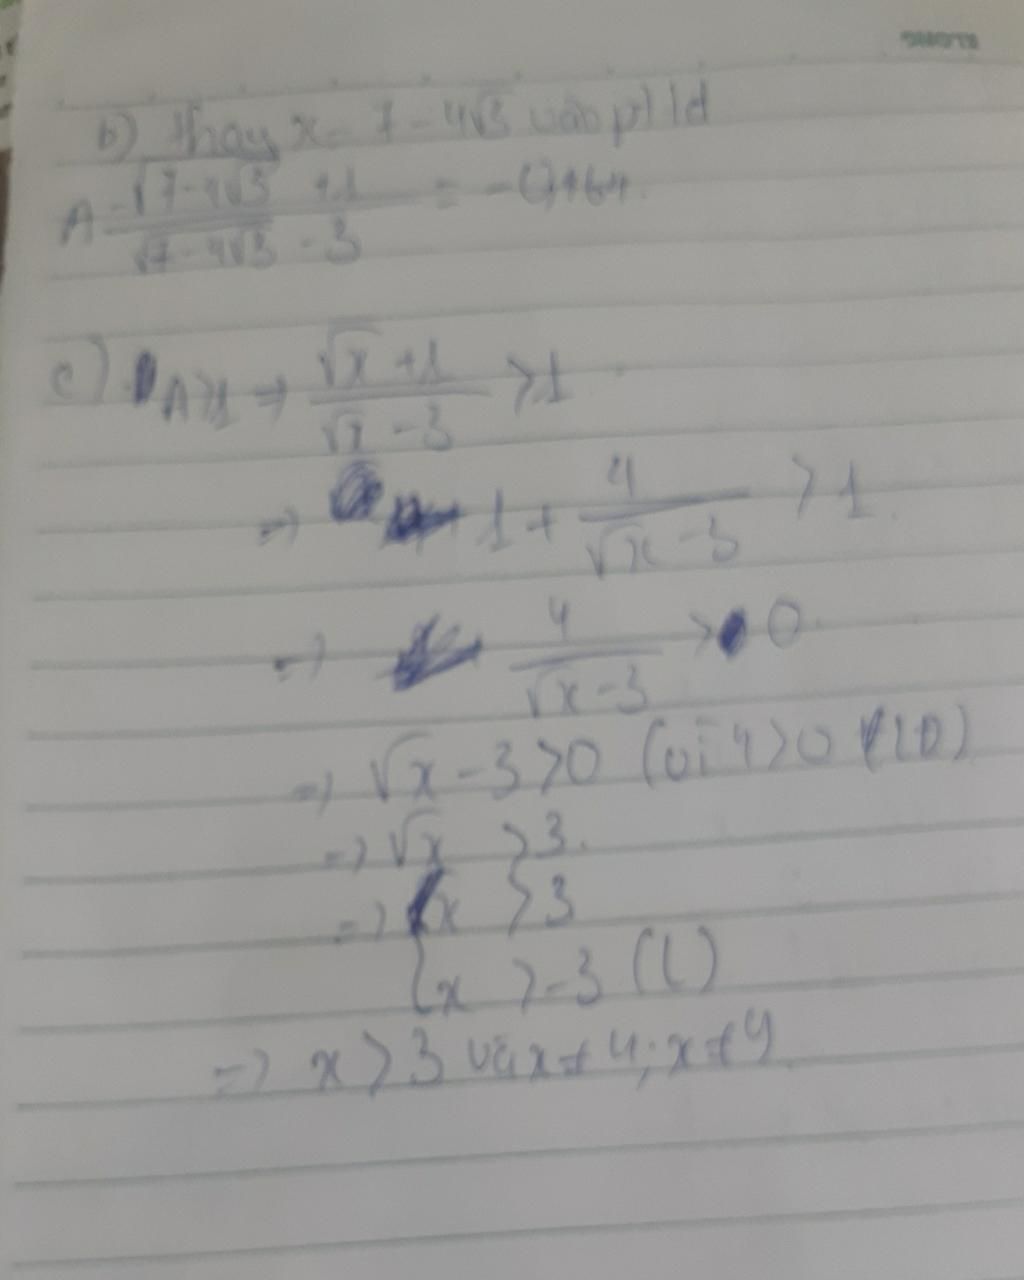 b) Thay x = 7 - 4√3 vào
A = (√(7-4√3) + 1)/(√(7-4√3) - 3) = -0,464.
c) A>1 => (√x + 1)/(√x - 3) > 1
=> 1 + 4/(√x - 3) > 1.
=> 4/(√x - 3) > 0
=> √x - 3 > 0 (vì 4 > 0 )
=> √x > 3.
=> { x > 3
x > -3 (L)
=> x > 3 và x ≠ 4; x ≠ 9.